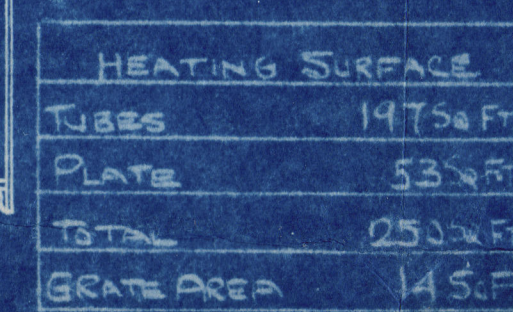 HEATING SURFACE
TUBES 197 SQ FT
PLATE 53 SQ FT
TOTAL 250 SQ FT
GRATE AREA 14 SQ F